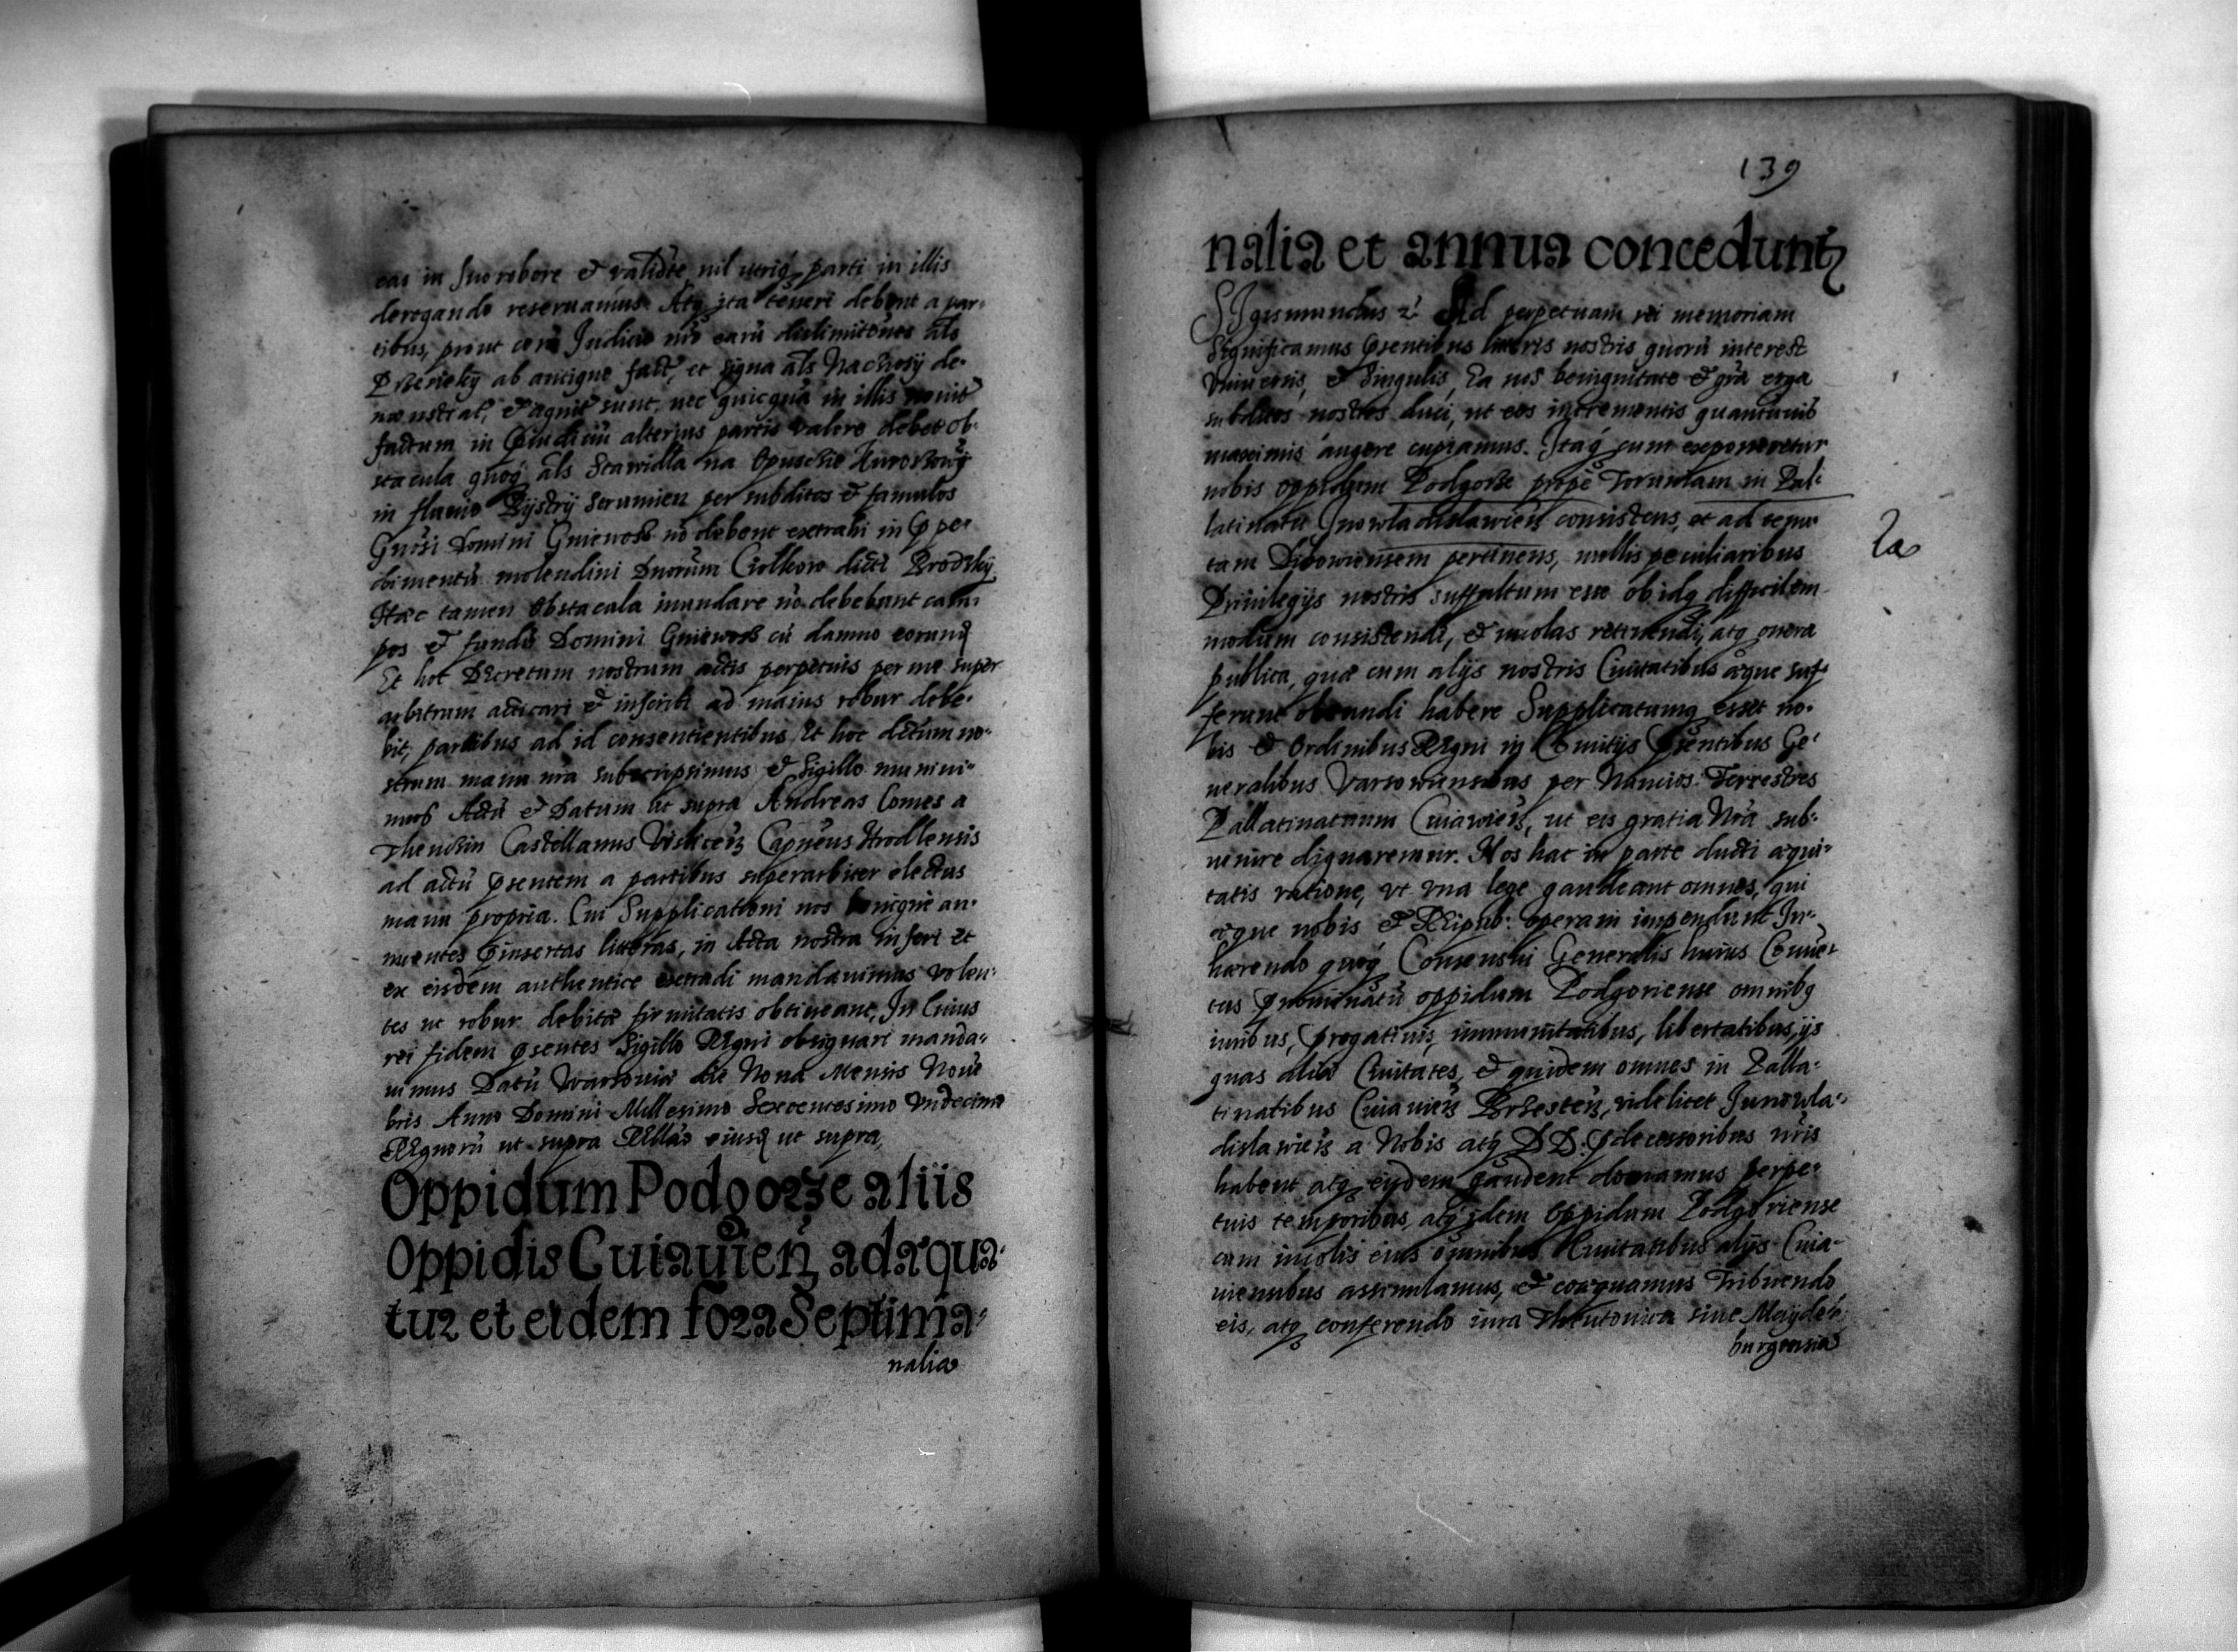 eas in suo robore & validitē nil utriq́ parti in illis
derogando reseruamus. Atq ita teneri debent a par-
tibus, prout corā Judicio nr̄o earū delimitōnes als
ab antiquo fact, et signa als Naciosy de-
& agnit sunt, nec quicquā in illis
factum in p̄iudiciū alterius partis valere debet ob-
stacula quoq́ als Stawidla na Opuscie
in fluuio Bystry Strumien per subditos & famulos
Gn̄osi Domini Gniewosz nō debent extrahi in p̄pe-
dimentū molendini Dnorum Ciolkow dicti Brodzky
Hæc tamen obstacula inundare nō debebunt cam-
pos & fundū Domini Gniewosz cū damno eorund
Et hoc Decretum nostrum actis perpetuis per me super
arbitrum acticari & inscribi ad maius robur debe-
bit, partibus ad id consentientibus Et hoc dictum no-
strum manu mīa subscripsimus & sigillo muniui-
mus Actū & Datum ut supra Andreas Comes a
Thenczin Castellanus Vislicen̄ Capneus Hrodlensis
ad actū p̄sentem a partibus superarbiter electus
manu propria. Cui Supplicationi nos benigne an-
nuentes p̄insertas litteras, in Acta nostra inseri et
ex eisdem authentice extradi mandauimus volen-
tes ut robur debitæ firmitatis obtineant, In Cuius
rei fidem p̄sentes Sigillo Regni obsignari manda-
uimus Datū Warsouiæ die Nona Mensis Noue
bris Anno Domini Millesimo Sexcentesimo Vndecimo
Regnorū ut supra Rellāo eiusd ut supra
Oppidum Podgorze aliis
Oppidis Cuiauien̄ adæqua-
tur et eidem fora Septima-
nalia
139
nalia et annua concedunt
Sigismundus 2: Ad perpetuam rei memoriam
Significamus p̄sentibus litteris nostris quorū interest
Vniuersis, & Singulis, Ea nos benignitate & grā erga
subditos nostros duci, ut eos incrementis quantumuis
maximis augere cupiamus. Itaq́ cum exponeretur
nobis oppidum Podgorze prope Toruniam in Pal-
latinatu Inowladislawien̄ consistens, et ad tenu-
tam Dibowiensem pertinens, nullis peculiaribus
Priuilegijs nostris suffultum esse ob idq difficilem
modum consistendi, & incolas retinendi, atq onera
publica, quæ cum alijs nostris Ciuitatibus æque suf-
ferunt obeundi habere Supplicatumq esset no-
bis & Ordinibus Regni in Comitijs p̄sentibus Ge-
neralibus Varsouiensibus per Nuncios Terrestres
Pallatinatuum Cuiawien̄, ut eis gratia Nrā sub-
uenire dignaremur. Nos hac in parte ducti æqui-
tatis ratione, vt vna lege gaudeant omnes, qui
æque nobis & Reipub: operam impendunt In-
hærendo quoq́ Consensui Generalis huius Conuen-
tus p̄nominatū oppidum Podgoriense omnibq
iuribus, p̄rogatiuis, immunitatibus, libertatibus, ijs
quas aliæ Ciuitates, & quidem omnes in Palla-
tinatibus Cuiauien̄ Brzesten̄, videlicet Junowla-
dislawien̄ a Nobis atq́ DD. p̄decessoribus nr̄is
habent atq eisdem gaudent donamus perpe-
tuis temporibus, atq́ idem Oppidum Podgoriense
cum incolis eius omnibus Ciuitatibus alijs Cuia-
uiensibus assimulamus, & coæquamus Tribuendo
eis, atq conferendo iura Theutonica siue Maydē-
burgensia